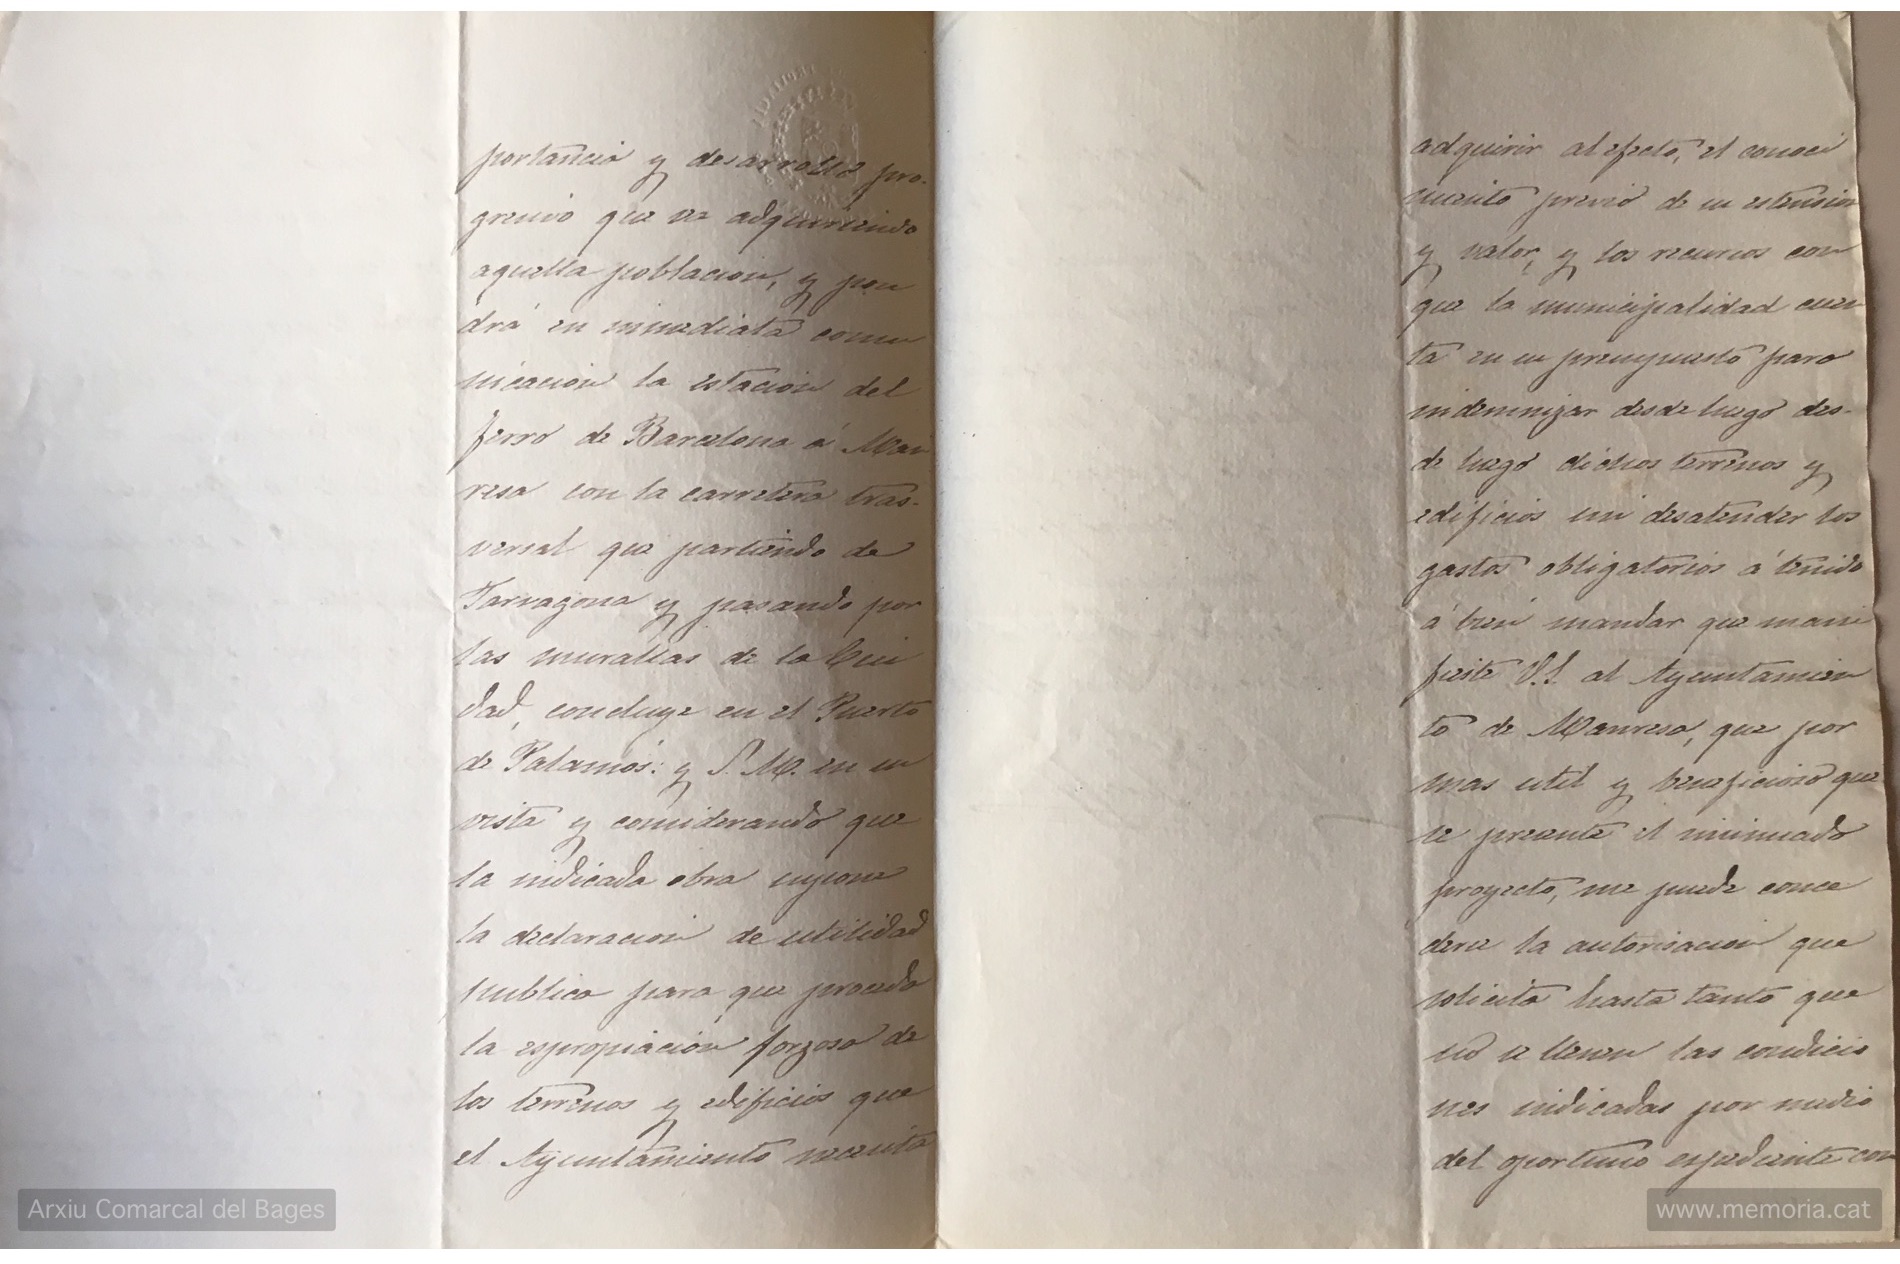 portancia y desarrollo pro-
gresivo que va adquiriendo
aquella poblacion, y pon
drá en inmediata comu
nicacion la estacion del
ferro de Barcelona á Man
resa con la carretera tras-
versal que partiendo de
Tarragona y pasando por
las murallas de la Ciu
dad, concluye en el Puerto
de Palamós: y S. M. en su
vista y considerando que
la indicada obra supone
la declaracion de utilidad
publica para que proceda
la espropiacion forzosa de
los terrenos y edificios que
el Ayuntamiento necesita
adquirir al efecto, el conoci
miento previo de su estension
y valor, y los recursos con
que la municipalidad cuen
ta en su presupuesto para
indemnizar desde luego des-
de luego dichos terrenos y
edificios sin desatender los
gastos obligatorios á tenido
á bien mandar que mani
fieste V.S. al Ayuntamien
to de Manresa, que por
mas util y beneficioso que
se presente el insinuado
proyecto, no puede conce
derse la autorisacion que
solicita hasta tanto que
no se llenen las condicio
nes indicadas por medio
del oportuno espediente con
Arxiu Comarcal del Bages
www.memoria.cat